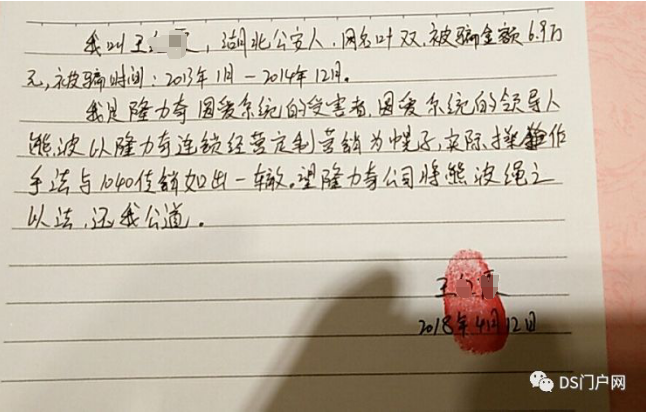 我叫王，湖北公安人，网名叶双，被骗金额6.9万
元，被骗时间：2013年1月－2014年12月。
我是隆力奇因爱系统的受害者，因爱系统的领导人
熊波以隆力奇连锁经营定制营销为幌子，实际操作
手法与1040传销如出一辙。望隆力奇公司将熊波绳之
以法，还我公道。
王
2018年4月12日
DS门户网